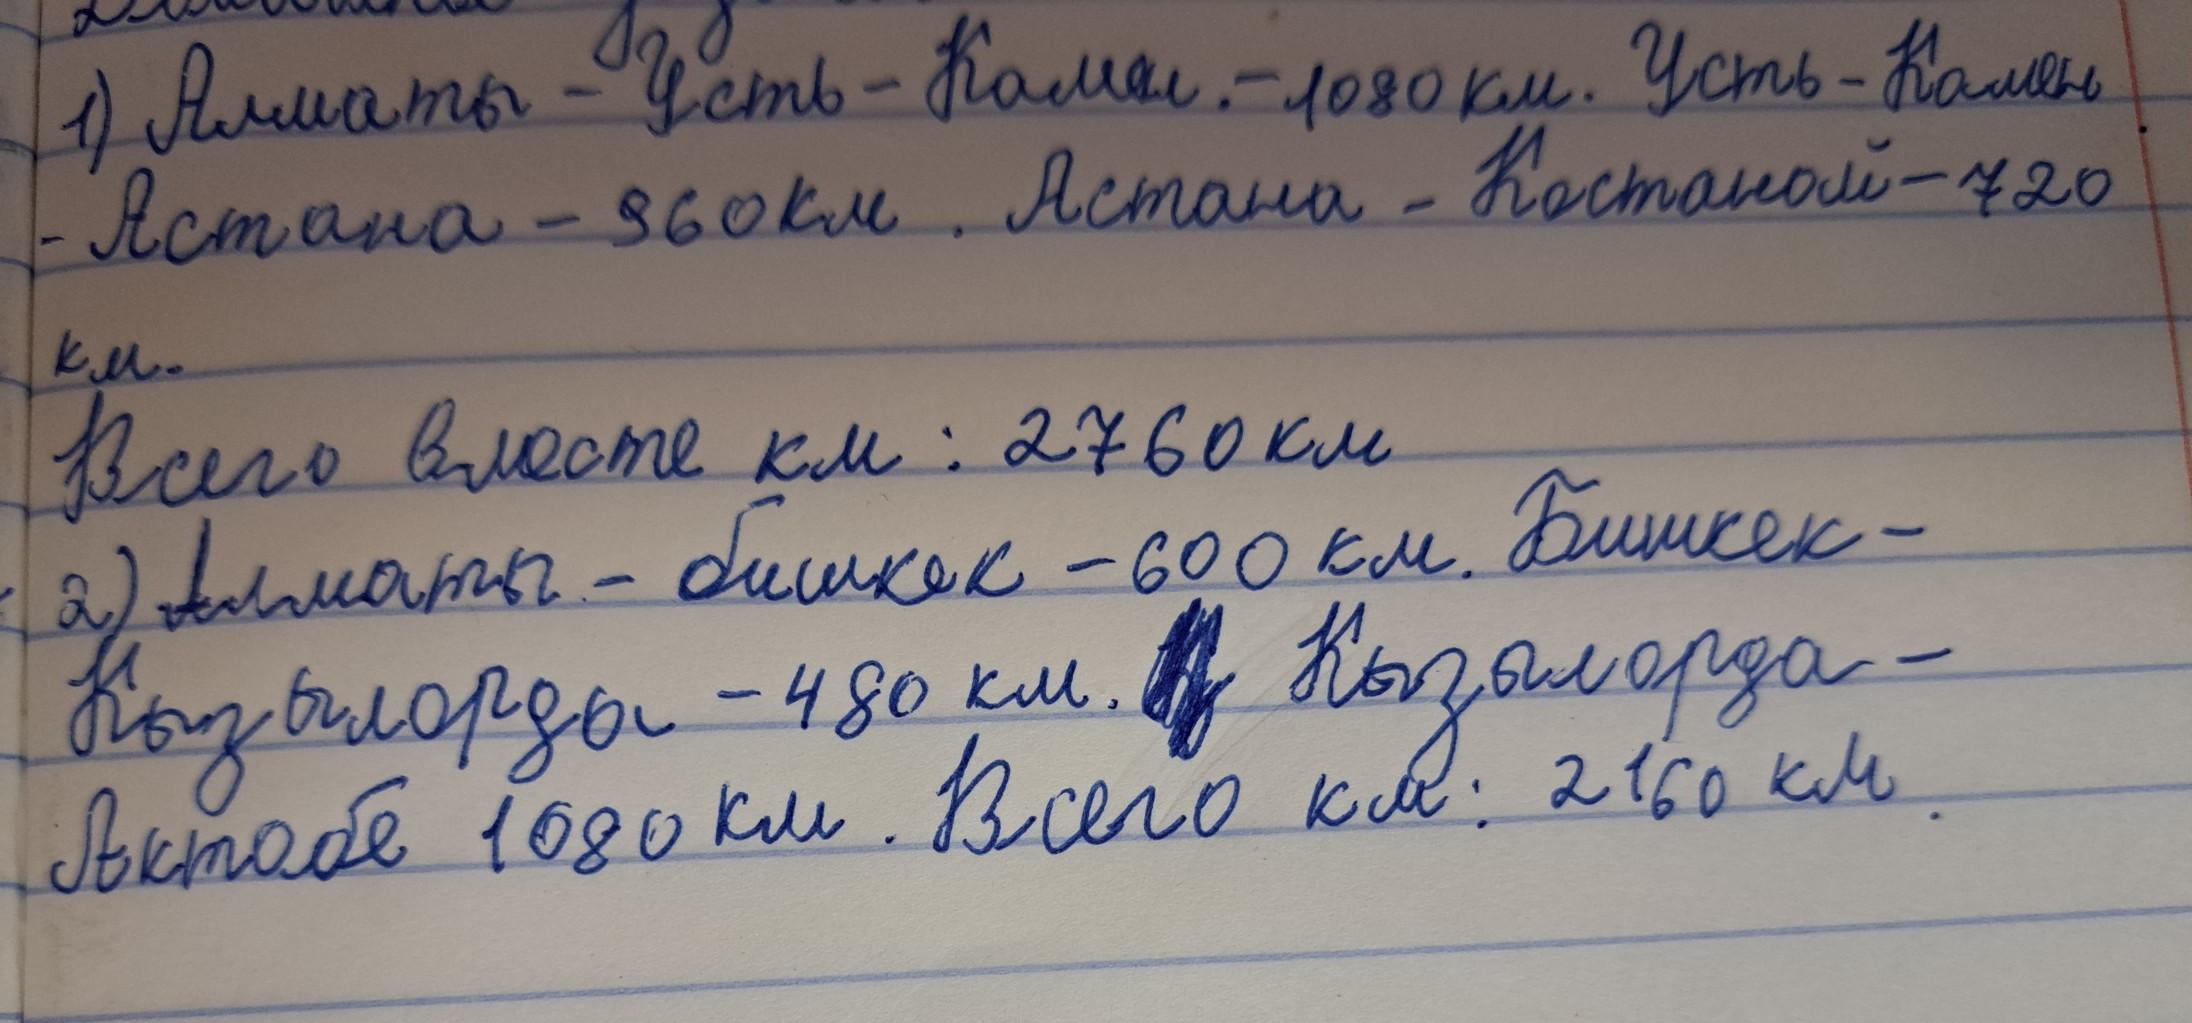 1) Алматы - Усть - Камен. - 1080 км. Усть - Камень
- Астана - 960 км. Астана - Костаной - 720
км.
Всего вместе км : 2760 км
2) Алматы - бишкек - 600 км. Бишкек -
Кызылорда - 480 км. Кызылорда -
Актобе 1080 км. Всего км: 2160 км.